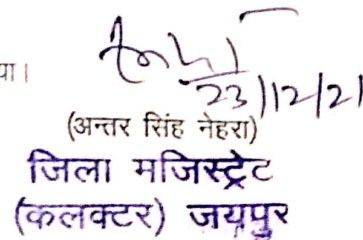 या।
23/12/21
(अन्तर सिंह नेहरा)
जिला मजिस्ट्रेट
(कलक्टर) जयपुर